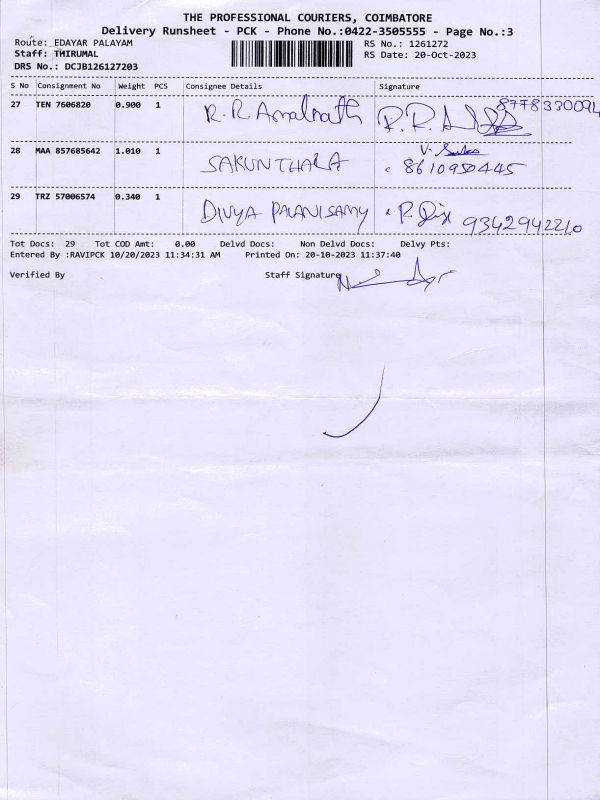 THE PROFESSIONAL COURIERS, COIMBATORE
Delivery Runsheet - PCK - Phone No.:0422-3505555 - Page No.:3
Route: EDAYAR PALAYAM RS No.: 1261272
Staff: THIRUMAL RS Date: 20-Oct-2023
DRS No.: DCJB126127203
S No Consignment No Weight PCS Consignee Details Signature
27 TEN 7606820 0.900 1 R.R Amalnath 8778330094
28 MAA 857685642 1.010 1 SAKUNTHALA 8610950445
29 TRZ 57006574 0.340 1 DIVYA PALANISAMY 9342942210
Tot Docs: 29 Tot COD Amt: 0.00 Delvd Docs: Non Delvd Docs: Delvy Pts:
Entered By :RAVIPCK 10/20/2023 11:34:31 AM Printed On: 20-10-2023 11:37:40
Verified By Staff Signature